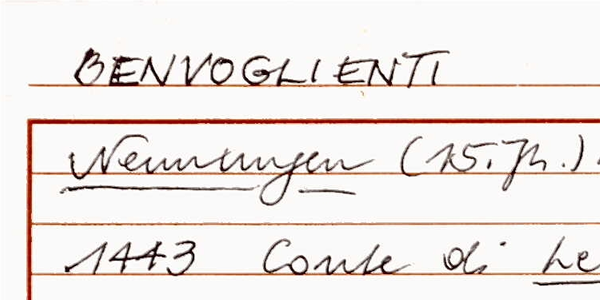 BENVOGLIENTI
Nennungen (15. Jh.).
1443 Conte di Le